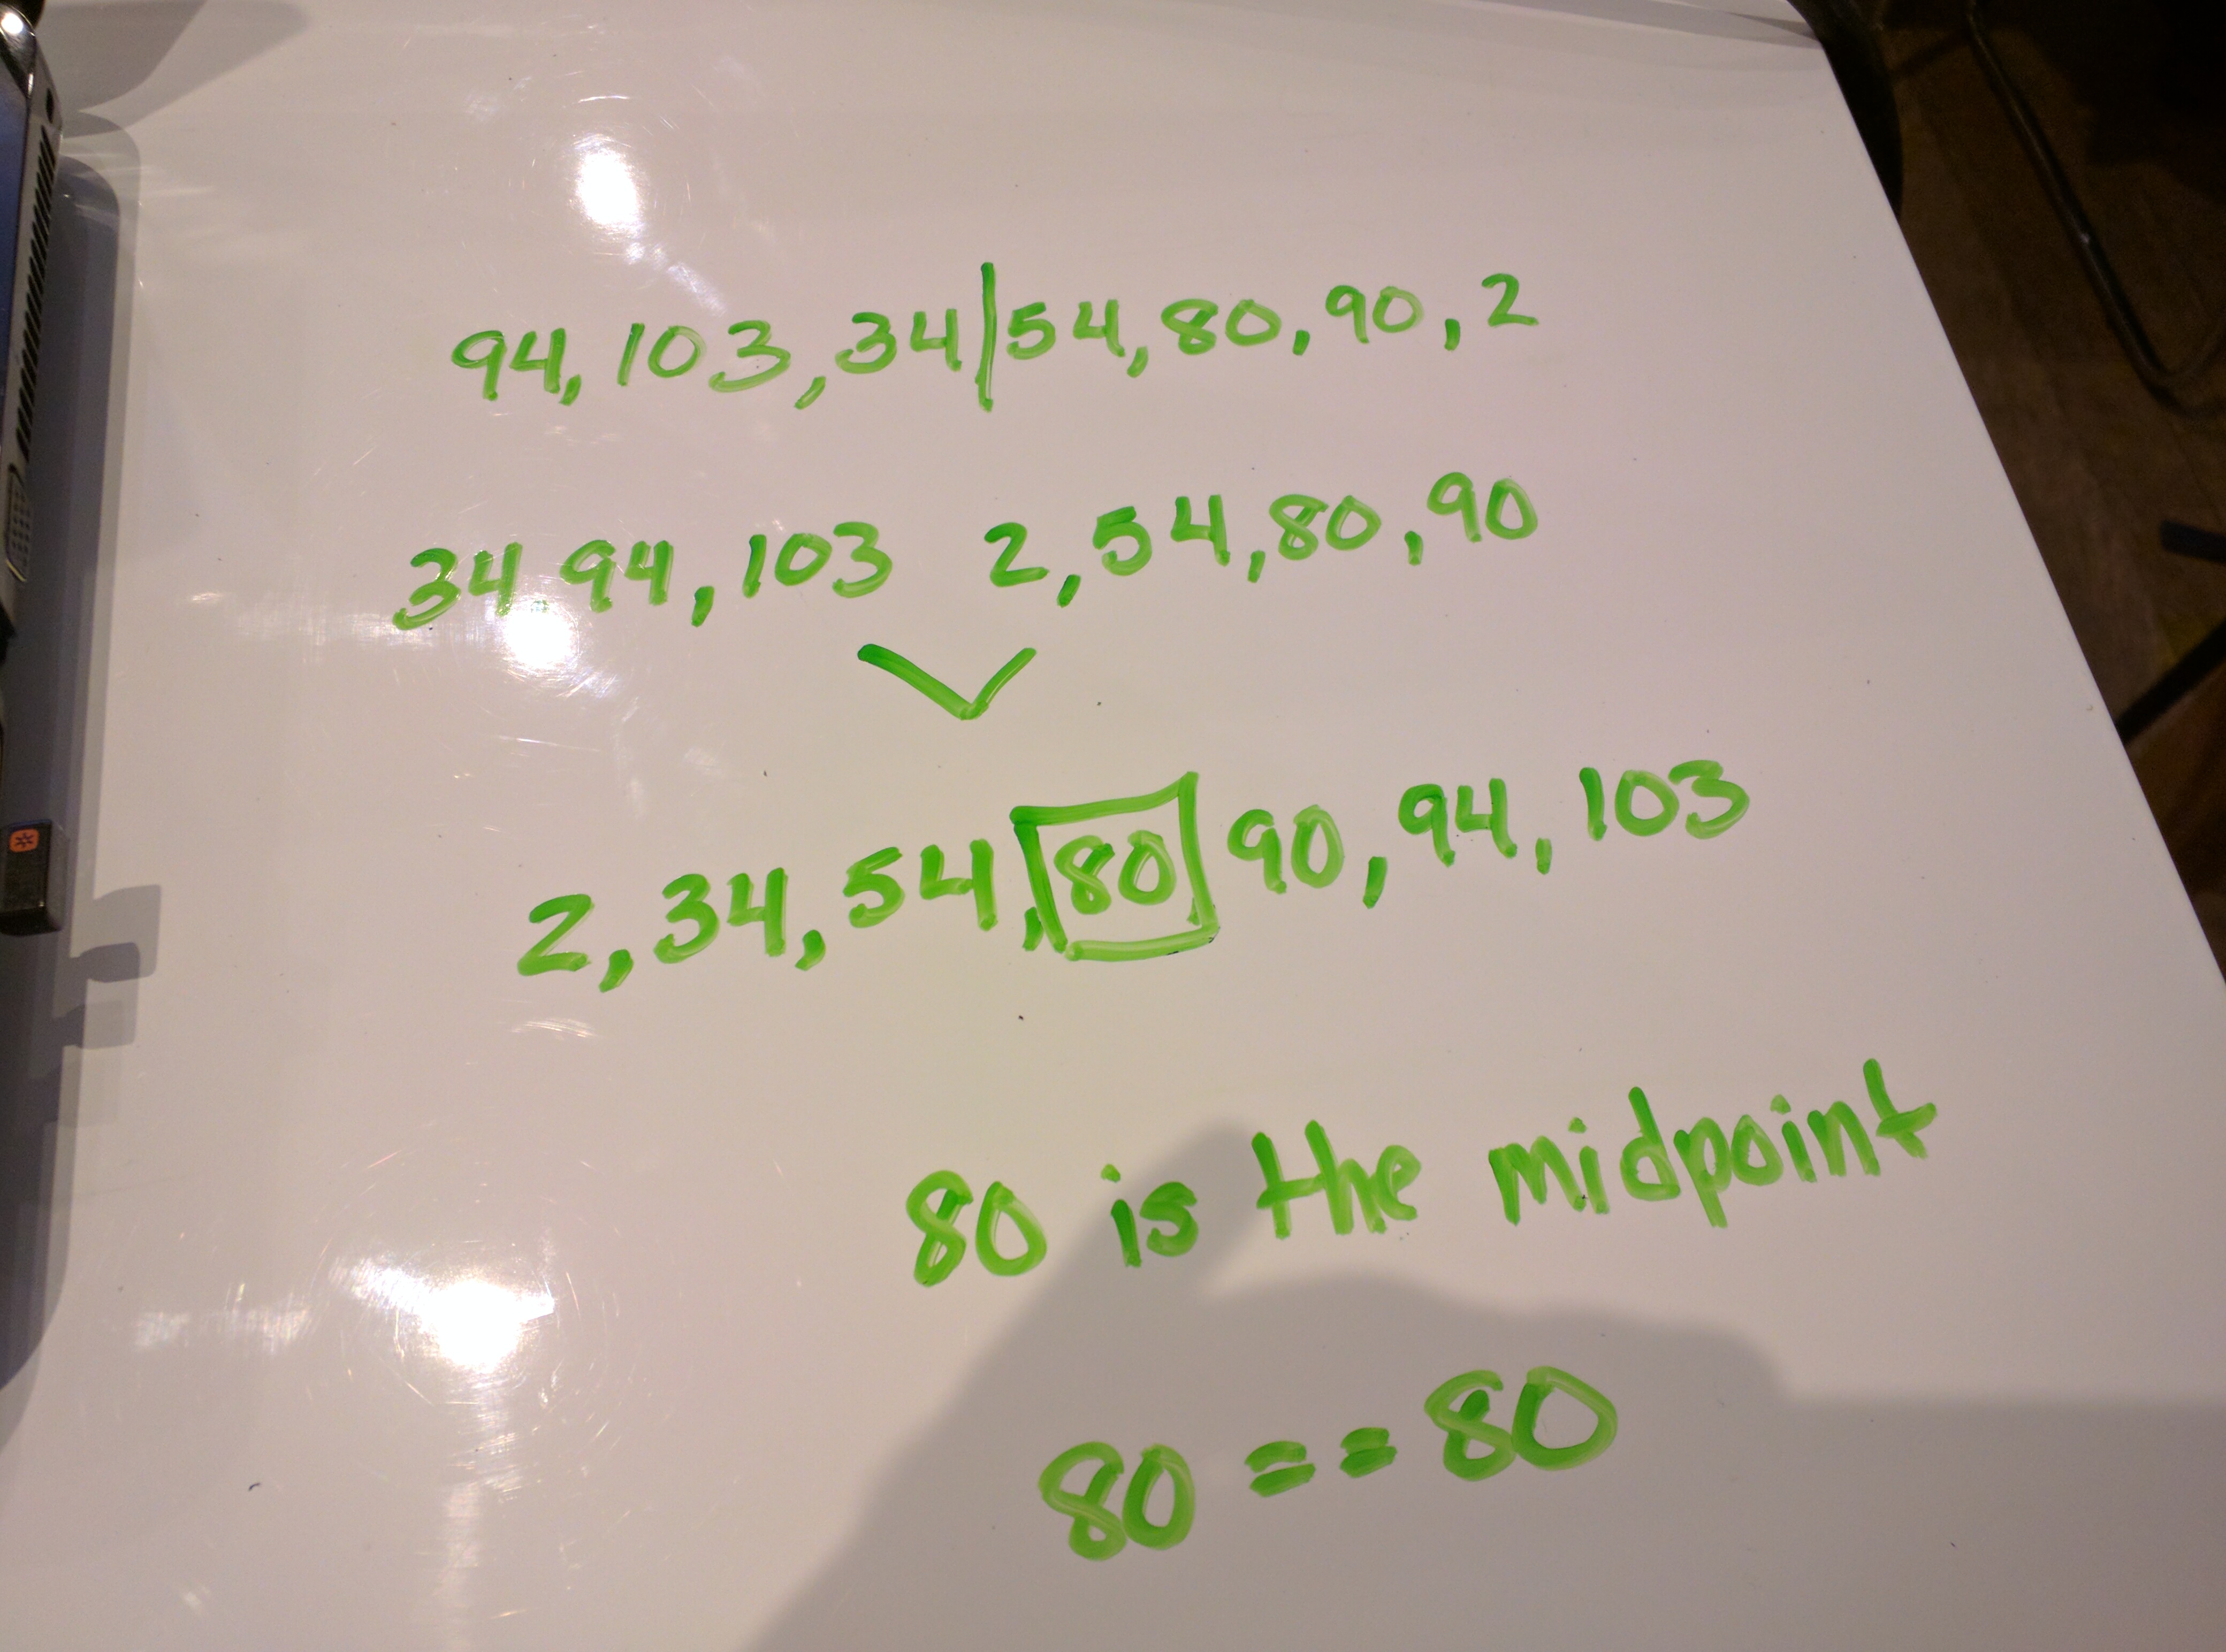 94, 103, 34|54, 80, 90, 2
34, 94, 103 2, 54, 80, 90
2, 34, 54, 80, 90, 94, 103
80 is the midpoint
80 == 80